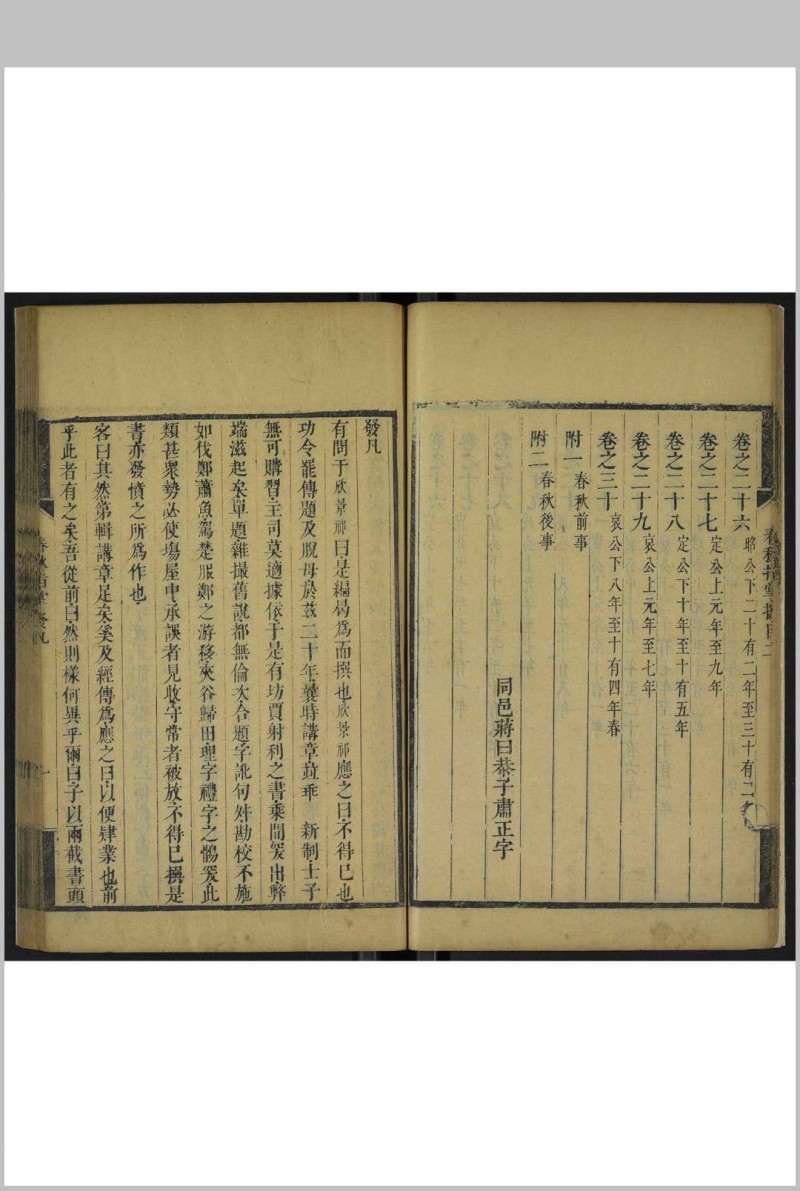 卷之二十六 昭公下二十有二年至三十有二年
卷之二十七 定公上元年至九年
卷之二十八 定公下十年至十有五年
卷之二十九 哀公上元年至七年
卷之三十 哀公下八年至十有四年春
附一 春秋前事
附二 春秋後事
同邑蔣曰恭子肅正字
發凡
有問于欣景祁曰是編曷爲而撰也欣景祁應之曰不得已也
功令罷傳題及脫母於茲二十年曩時講章竝乖 新制士子
無可購習主司莫適據依于是有坊賈射利之書乘間㕛出弊
端滋起矣單題雜撮舊說都無倫次合題字訛句舛勘校不施
如伐鄭蕭魚駕楚服鄭之游移夾谷歸田理字禮字之鶻突此
類甚衆勢必使塲屋中承誤者見收守常者被放不得已撰是
書亦發憤之所爲作也
客曰其然第輯講章足矣奚及經傳爲應之曰以便肄業也前
乎此者有之矣吾從前曰然則樣何異乎爾曰子以兩截書頭
春秋指掌發凡
一